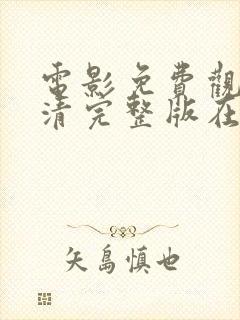 電影免費觀
清完整版在
矢島慎也